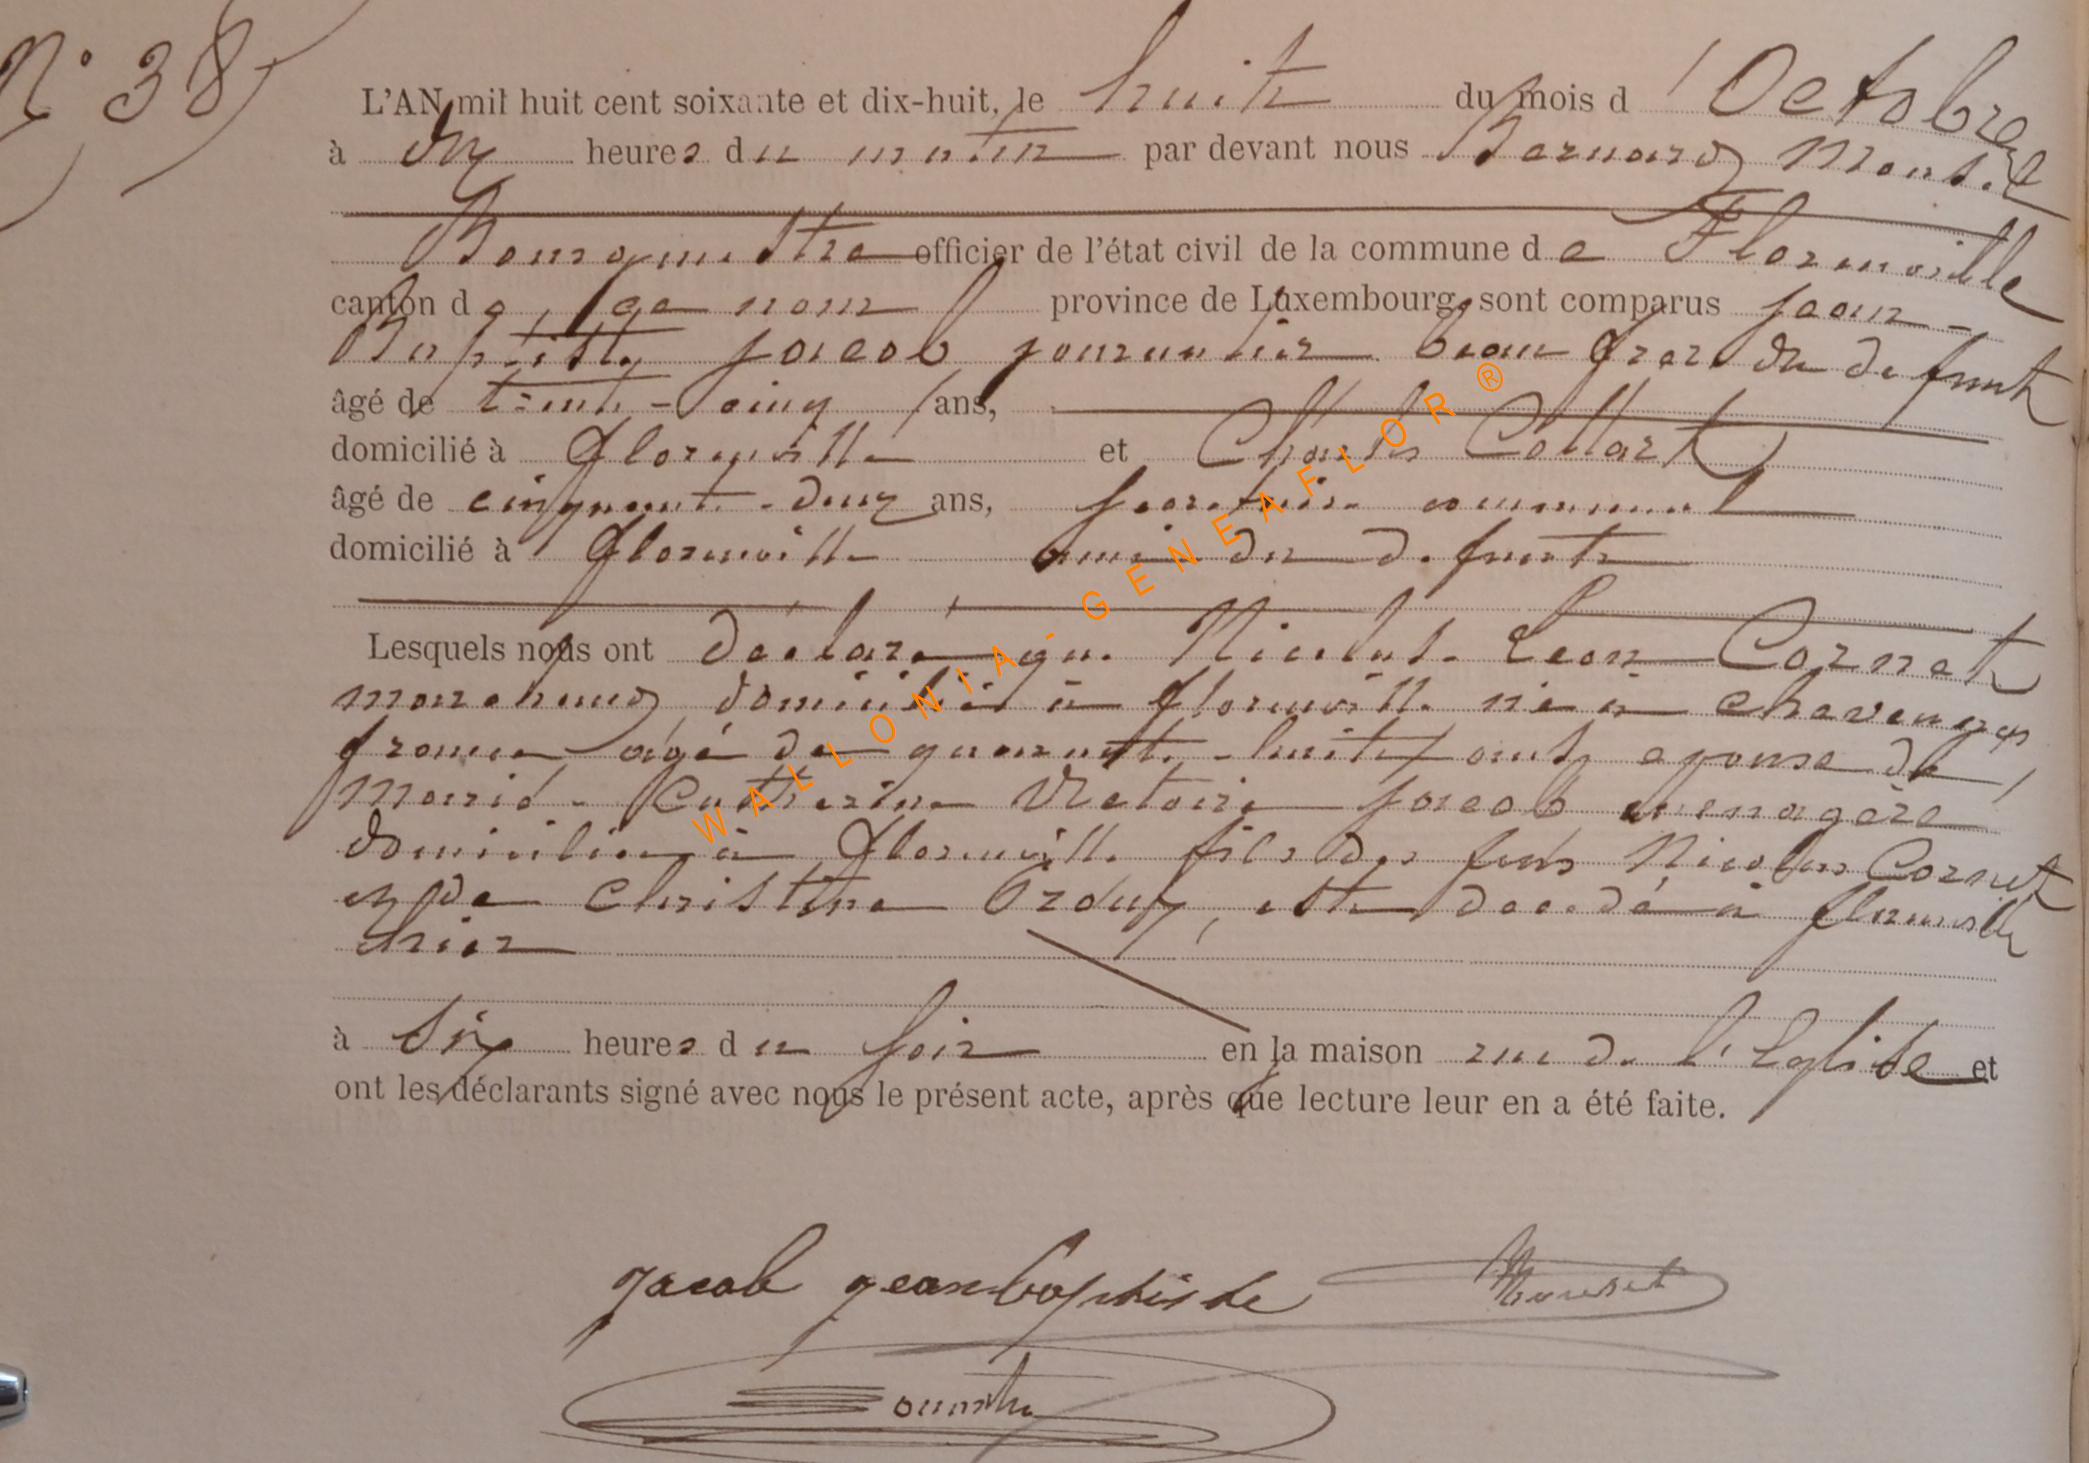 N° 38
L'AN mil huit cent soixante et dix-huit, le huit du mois d'Octobre
à dix heures du matin par devant nous Bernard Mouset
Bourgmestre officier de l'état civil de la commune de Florenville
canton de ce nom province de Luxembourg, sont comparus Jean-
Baptiste Jacob journalier beau frere du defunt
âgé de trente-cinq ans,
domicilié à Florenville et Charles Collart
âgé de cinquante-deux ans, secretaire communal
domicilié à Florenville ami du defunt
Lesquels nous ont déclaré que Nicolas Leon Cornet
marchand domicilié à Florenville né à
france âgé de quarante-huit ans, epouse de
Marie-Catherine Victoire Jacob menagère
domiciliée à Florenville fils des feus Nicolas Cornet
et de Christine est decedé à florenville
hier
à six heures du soir en la maison rue de l'Eglise et
ont les déclarants signé avec nous le présent acte, après que lecture leur en a été faite.
Jacob jean baptiste Mouset
WALLONIA-GENEAFLOR®